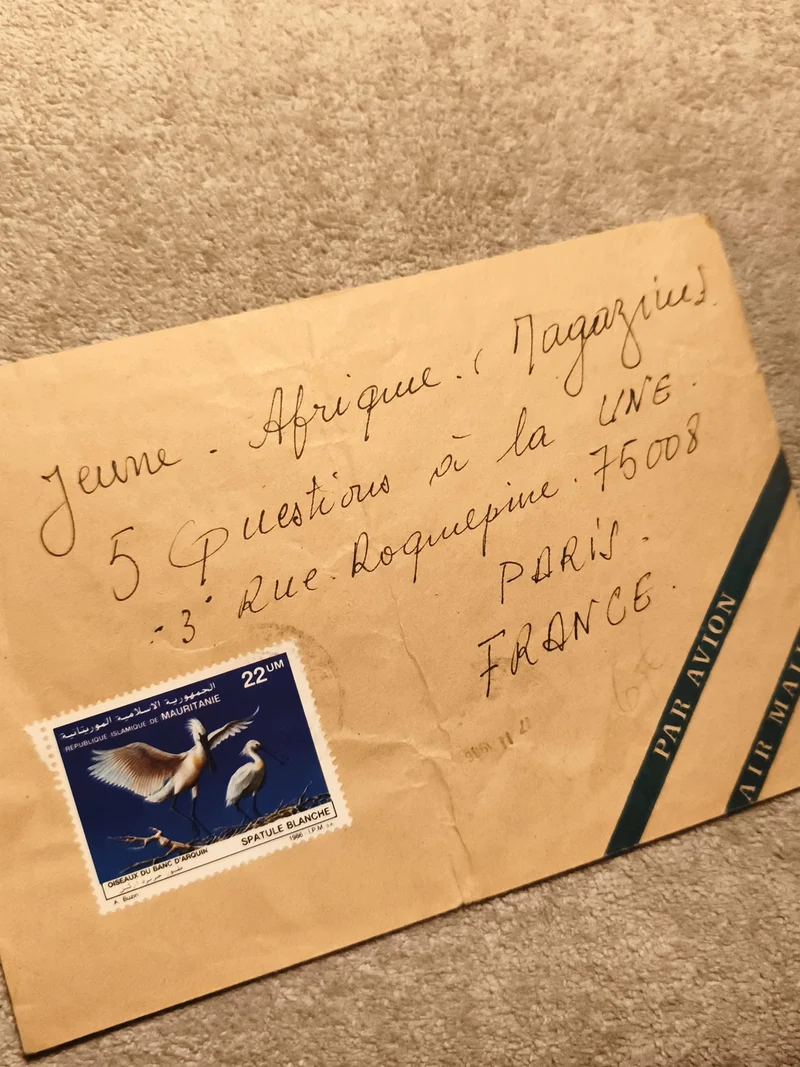 Jeune - Afrique. (Magazine).
5 Questions à la UNE.
"3" Rue. Roquepine. 75008
PARIS.
FRANCE.
22 UM
الجمهورية الاسلامية الموريتانية
REPUBLIQUE ISLAMIQUE DE MAURITANIE
SPATULE BLANCHE
OISEAUX DU BANC D'ARQUIN
1986 I.P.M.
PAR AVION
AIR MAIL